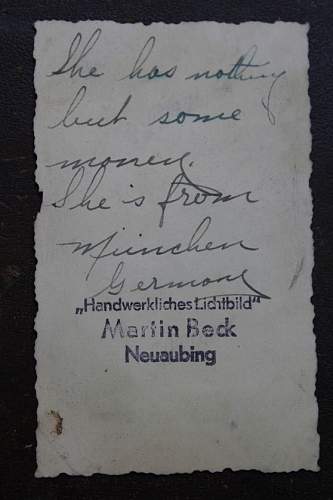 She has nothing
but some
money.
She is from
München
Germany
„Handwerkliches Lichtbild“
Martin Beck
Neuaubing